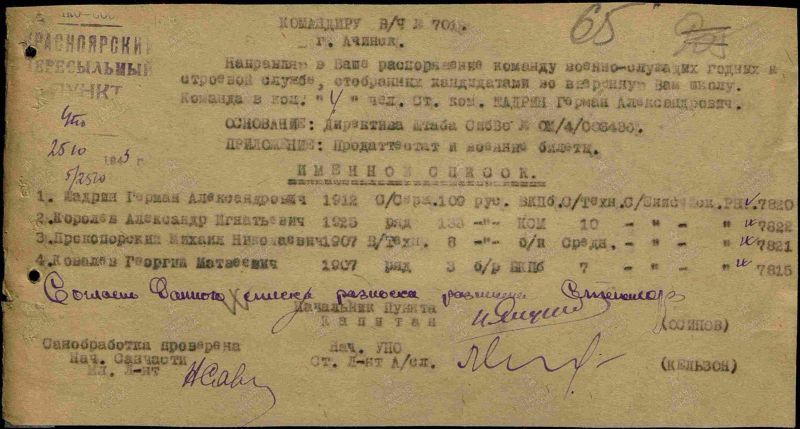 КОМАНДИРУ В/Ч № 701
65
г. Ачинск.
КРАСНОЯРСКИЙ
ПЕРЕСЫЛЬНЫЙ
ПУНКТ
Направляю в Ваше распоряжение команду военно-служащих годных к
строевой службе, отобранных кандидатами во вверенную Вам школу.
Команда в кол. "4" чел. Ст. ком. ШАДРИН Герман Александрович.
ОСНОВАНИЕ: Директива Штаба СибВо № ОМ/4/
ПРИЛОЖЕНИЕ: Продаттестат и военные билеты.
ИМЕННОЙ СПИСОК.
1. Шадрин Герман Александрович 1912 С/Серж. 109 рус. ВКПб. С/Техн. 7820
2. Королев Александр Игнатьевич 1925 ряд 133 -"- КОМ 10 - " - - " - 7822
3. Прокопорский Михаил Николаевич 1907 В/Техн. 8 -"- б/п Средн. - " - " - 7821
4. Ковалев Георгий Матвеевич 1907 ряд 3 б/р ВКПб 7 - " - " - 7815
Согласно данного списка
Начальник Пункта
Капитан
(ОСИПОВ)
Санобработка проверена
Нач. Санчасти
Мл. Л-нт
Нач. УПО
Ст. Л-нт А/сл.
(КЕЛЬЗОН)